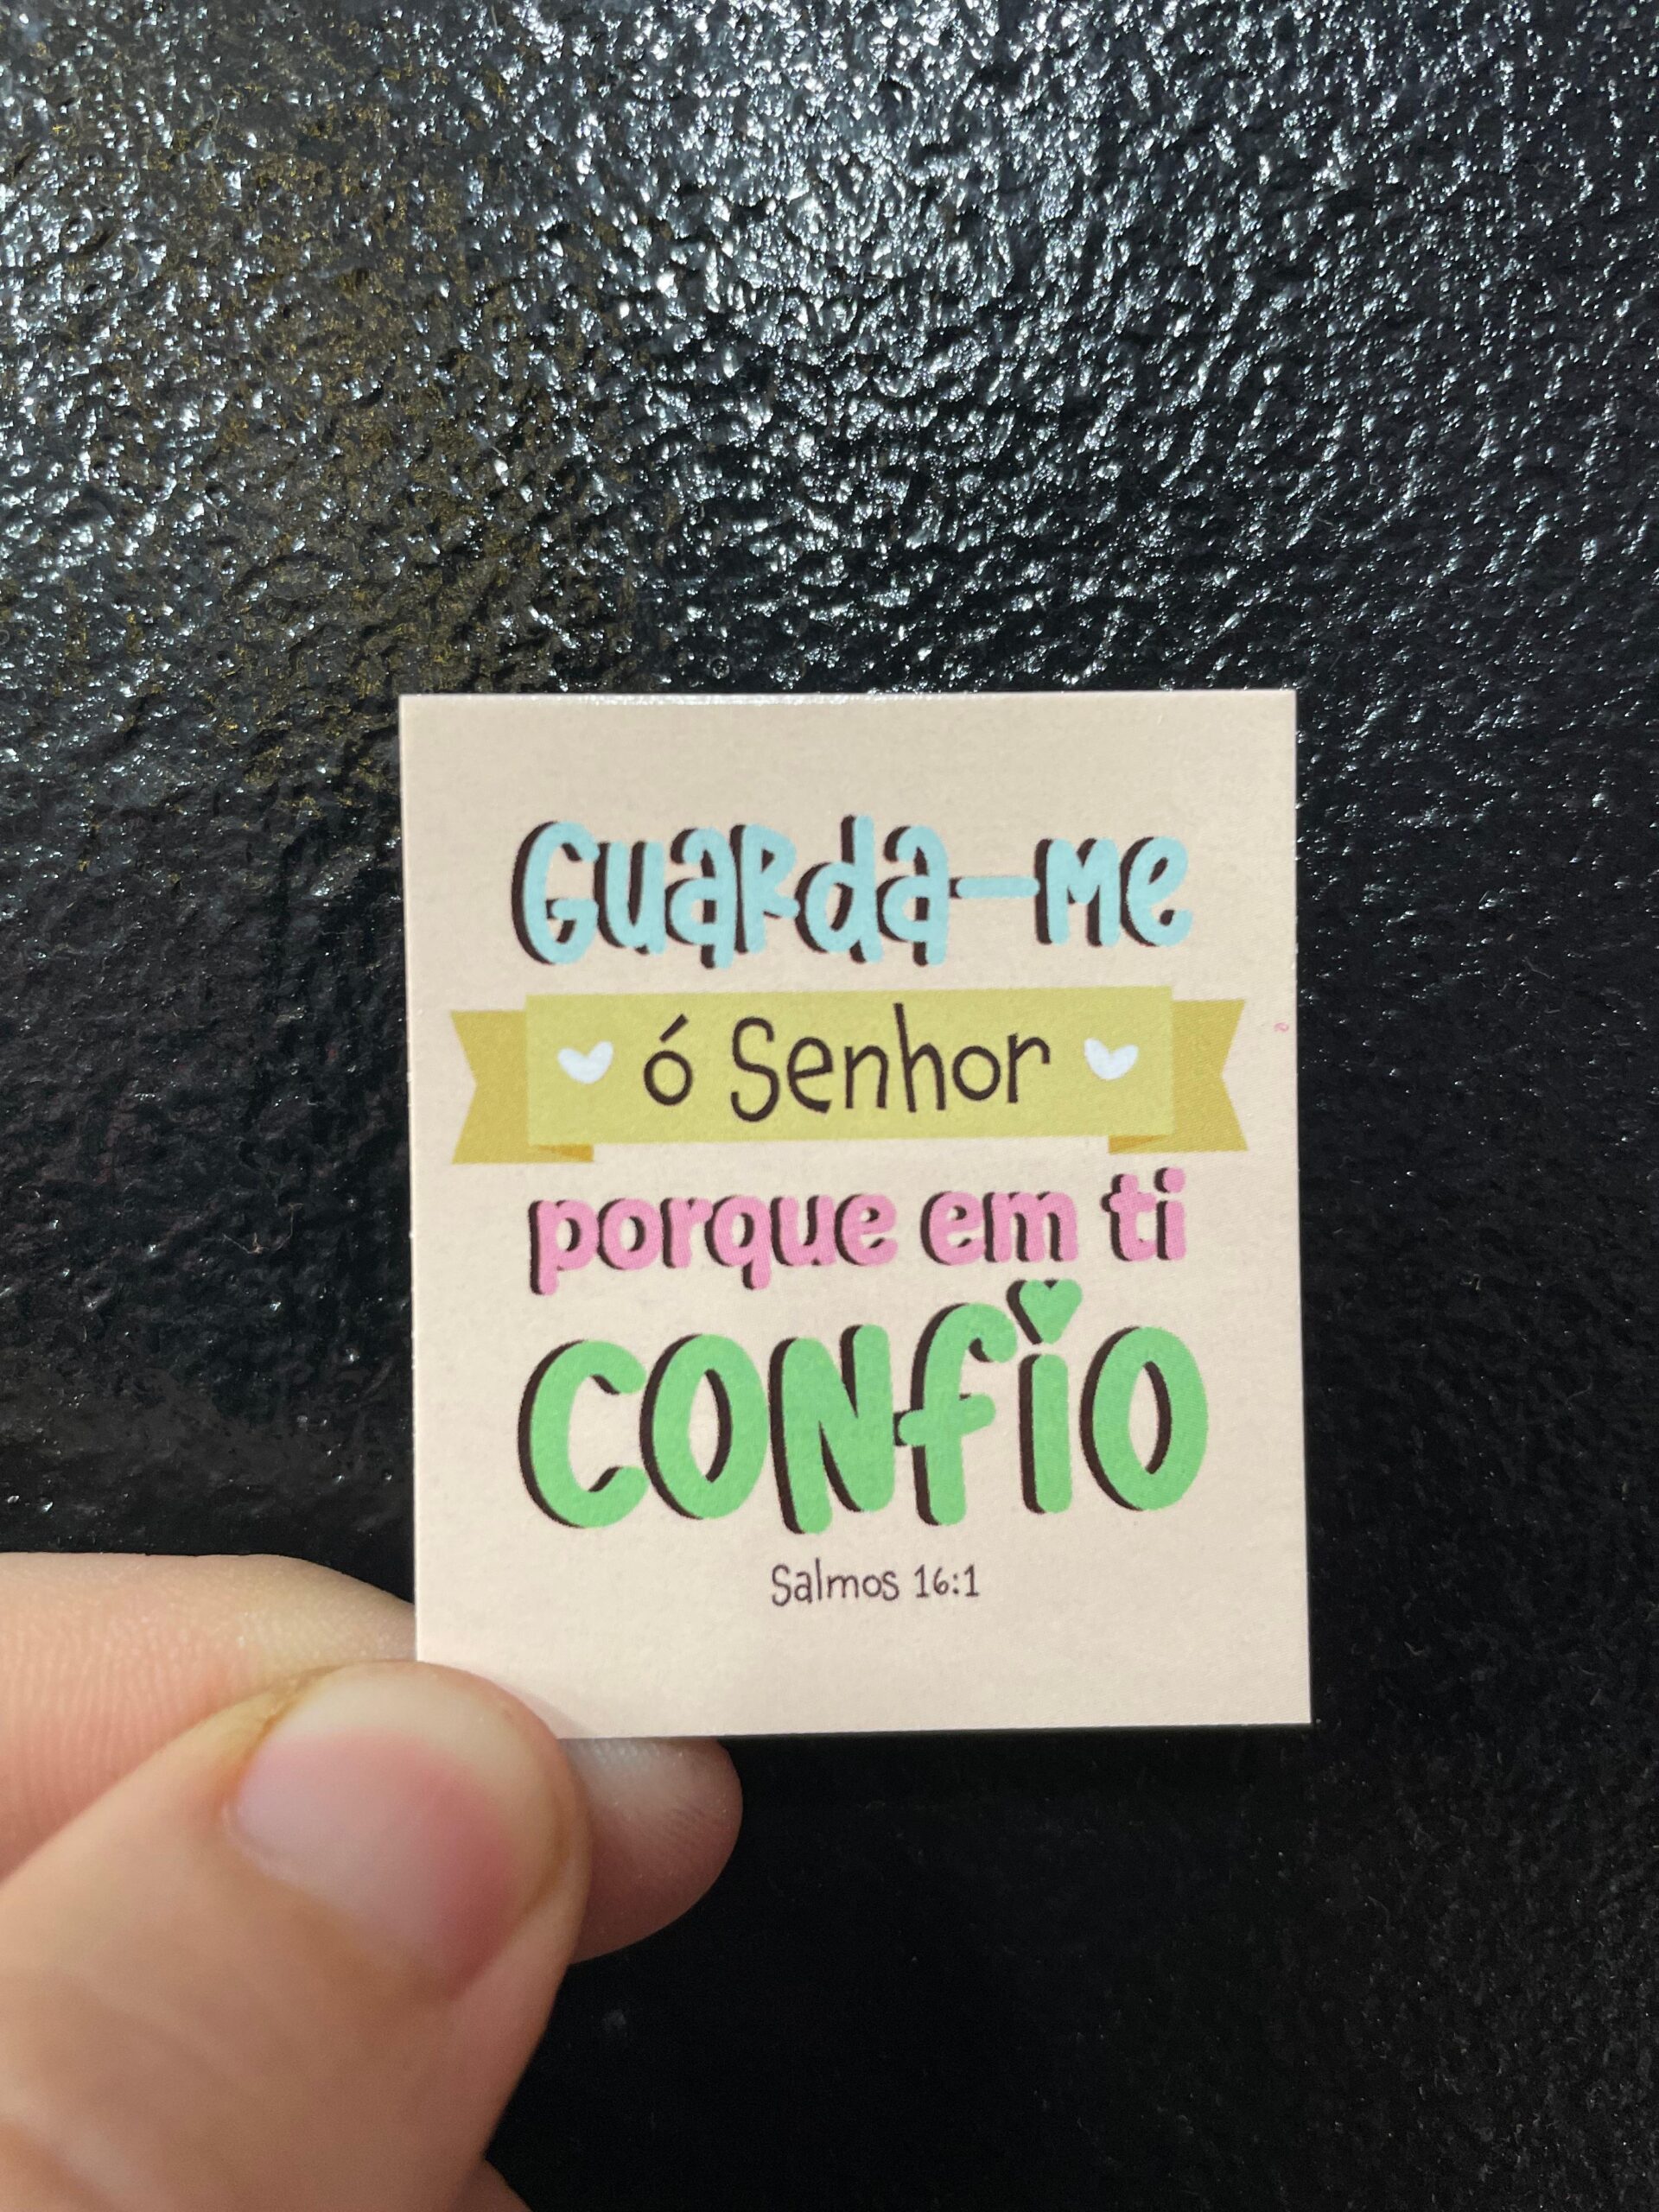 Guarda-me
ó Senhor
porque em ti
CONfiO
Salmos 16:1